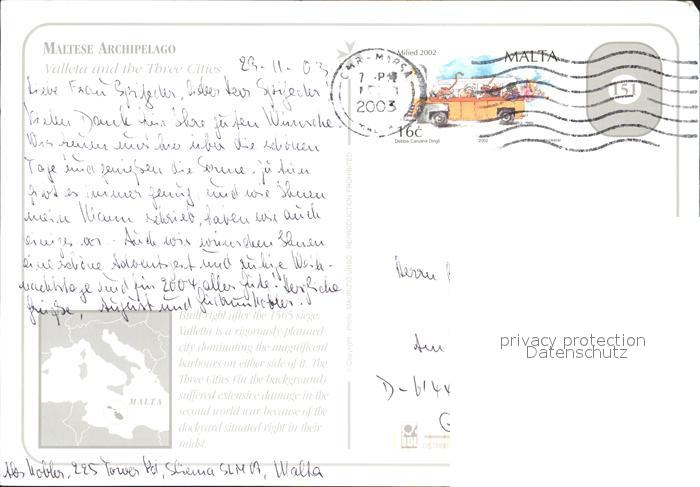 MALTESE ARCHIPELAGO
Valleta and the Three Cities
23-11-03
Liebe Frau Spitzeder, lieber Herr Spitzeder
Vielen Dank für Ihre guten Wünsche.
Wir freuen uns hier über die schönen
Tage und genießen die Sonne. Zu tun
gibt es immer genug, und wie Ihnen
mein Mann schrieb, haben wir auch
einiges vor. Auch wir wünschen Ihnen
eine schöne Adventszeit und ruhige Weih-
nachtstage und für 2004 alles Gute! Herzliche
Grüße, August und
Built right after the 1565 siege,
Valletta is a rigorously-planned
city dominating the magnificent
harbours on either side of it. The
Three Cities (in the background)
suffered extensive damage in the
second world war because of the
dockyard situated right in their
midst.
MALTA
Abs Kobler, 225 Tower Rd, Sliema SLM 01, Malta
© Copyright - Photo: MAURIZIO URSO - REPRODUCTION PROHIBITED
Milied 2002
MALTA
16c
Debbie Caruana Dingli
2002
CMR-MARSA
7-PM
2003
151
Herrn
Am
D-6144
privacy protection
Datenschutz